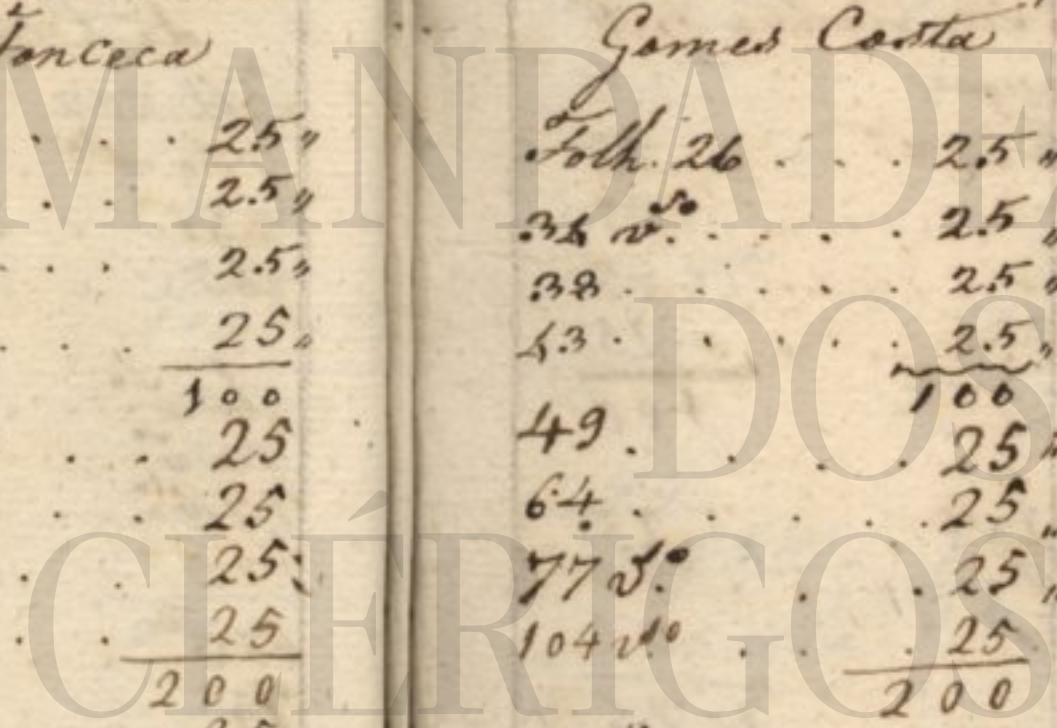 Fonceca
. . . 25„
. . 25„
. . . 25„
. . . 25„
100
. . 25
. . 25
. . 25
. . 25
200
Gomes Costa
Folh. 26 . . . 25„
34 v.so . . . . 25„
38 . . . . . . 25„
43 . . . . . 25„
100
49 . . . . 25„
64 . . . . 25„
77 v.o . . 25„
104 v.so . . . 25
200
MANDADE
DOS
CLÉRIGOS